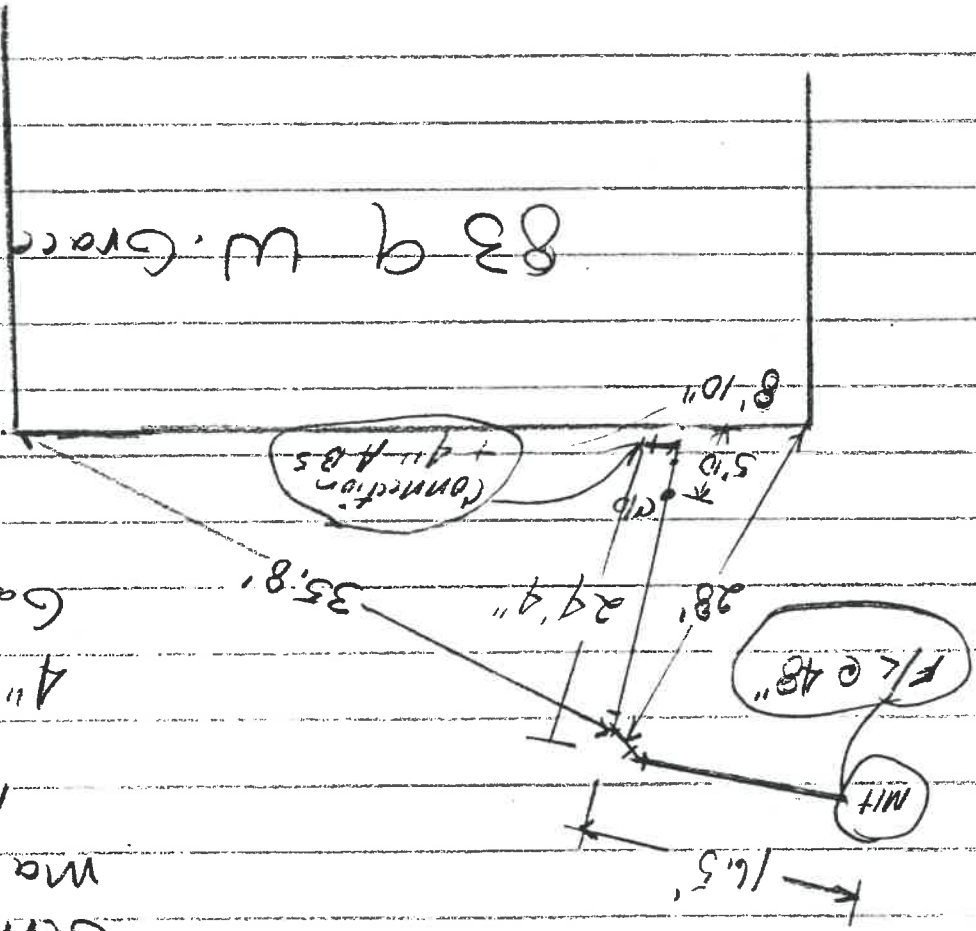 16.5'
MH
F/L @ 48"
4"
28'
29'9"
35.8'
C/O
5'10
Connection
+ 4" ABS
8'10"
839 W. Grace